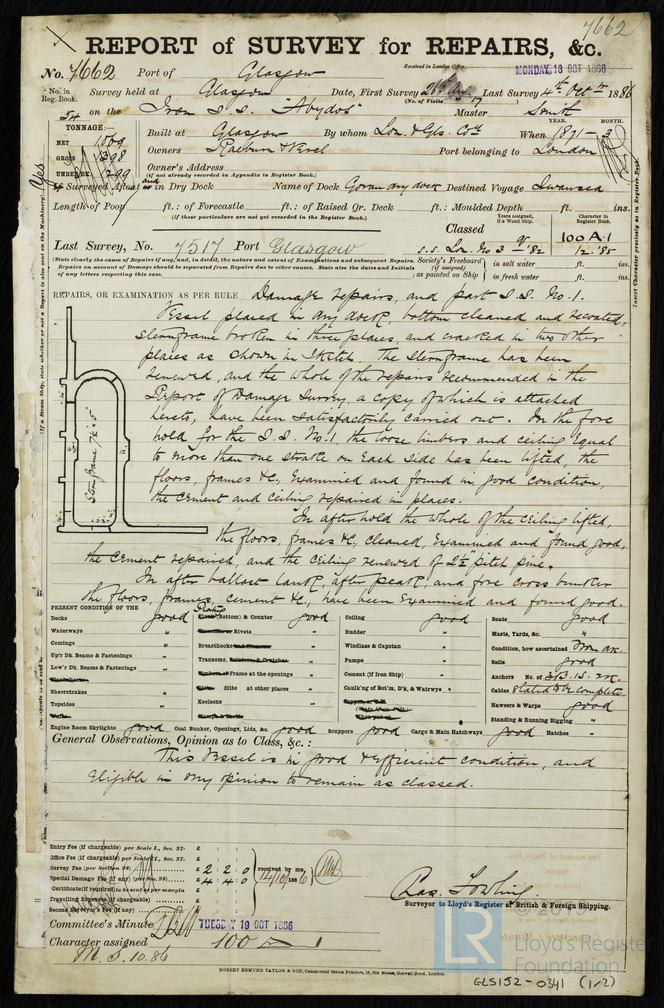 7662
REPORT of SURVEY for REPAIRS, &c.
No. 7662 Port of Glasgow
Received in London Office MONDAY 18 OCT 1886
No. in Reg. Book. Survey held at Glasgow Date, First Survey Last Survey 4th Oct 1886
(No. of Visits 7
54 on the Iron S.S. "Abydos" Master Smith
TONNAGE:— Built at Glasgow By whom Lon. & Gls. Co. When 1871 – 3
YEAR. MONTH.
NET 1069
GROSS 1398
UNDER DK 1299
Owners Raeburn & Verel Port belonging to London
Owner's Address
(if not already recorded in Appendix to Register Book.)
Surveyed Afloat and in Dry Dock Name of Dock Govan dry dock Destined Voyage Swansea
Length of Poop ft.: of Forecastle ft.: of Raised Qr. Deck ft.: Moulded Depth ft. ins.
(if these particulars are not yet recorded in the Register Book.)
Classed
Years assigned, if a Wood Ship.
Character in Register Book.
100 A.1
12.'85
Last Survey, No. 7517 Port Glasgow S.S. Lon. No 3 '82
(State clearly the cause of Repairs, if any, and, in detail, the nature and extent of Examinations and subsequent Repairs.
Repairs on account of Damage should be separated from Repairs due to other causes. State also the dates and Initials
of any letters respecting this case.
Society's Freeboard (if assigned) as painted on Ship in salt water ft. ins.
in fresh water ft. ins.
REPAIRS, OR EXAMINATION AS PER RULE Damage repairs, and part S.S. No. 1.
Vessel placed in dry dock, bottom cleaned and recoated,
sternframe broken in three places, and cracked in two other
places as shown in sketch. The sternframe has been
renewed, and the whole of the repairs recommended in the
Report of Damage Survey, a copy of which is attached
hereto, have been satisfactorily carried out. In the fore
hold for the S.S. No. 1, the loose limbers and ceiling equal
to more than one strake on each side has been lifted, the
floors, frames &c., examined and found in good condition,
the cement and ceiling repaired in places.
Stern frame
In after hold the whole of the ceiling lifted,
the floors, frames &c, cleaned, examined and found good,
the cement repaired, and the ceiling renewed of 2½" pitch pine.
In after ballast tank, after peak, and fore cross bunker
the floors, frames, cement &c., have been examined and found good.
PRESENT CONDITION OF THE
Decks good
Waterways "
Comings "
Up'r Dk. Beams & Fastenings "
Low'r Dk. Beams & Fastenings "
Sheerstrakes "
Topsides "
Plating (Bottom) & Counter good
Rivets "
Breasthooks "
Transoms, "
Frame at the openings "
ditto at other places "
Keelsons "
Ceiling good
Rudder "
Windlass & Capstan "
Pumps "
Cement (if Iron Ship) "
Caulk'ng of Bot'm, D'k, & Watrwys "
Boats good
Masts, Yards, &c. "
Condition, how ascertained From dk.
Sails good
Anchors No. of 3B.1S. 2K.
Cables Stated to be complete.
Hawsers & Warps good
Standing & Running Rigging "
Engine Room Skylights good Coal Bunker, Openings, Lids, &c. good Scuppers good Cargo & Main Hatchways good Hatches "
General Observations, Opinion as to Class, &c.:
This vessel is in good & efficient condition, and
eligible in my opinion to remain as classed.
Entry Fee (if chargeable) per Scale I., Sec. 27. £
Office Fee (if chargeable) per Scale I., Sec. 27. £
Survey Fee (per Section 28) £ 2 2 0
Special Damage Fee (if any) (per Sec. 28) £ 4 4 0
Certificate (if required) to be sent as per margin
Travelling Expenses (if chargeable) £
Second Surveyor's Fee (if any) £
received by me,
14/10/1886
Surveyor to Lloyd's Register of British & Foreign Shipping.
Committee's Minute TUESDAY 19 OCT 1886
Character assigned 100 A 1
10.86
ROBERT EDMUND TAYLOR & SON, Commercial Steam Printers, 19, Old Street, Goswell Road, London.
LR
Lloyd's Register
Foundation
GLS152-0341 (1/2)